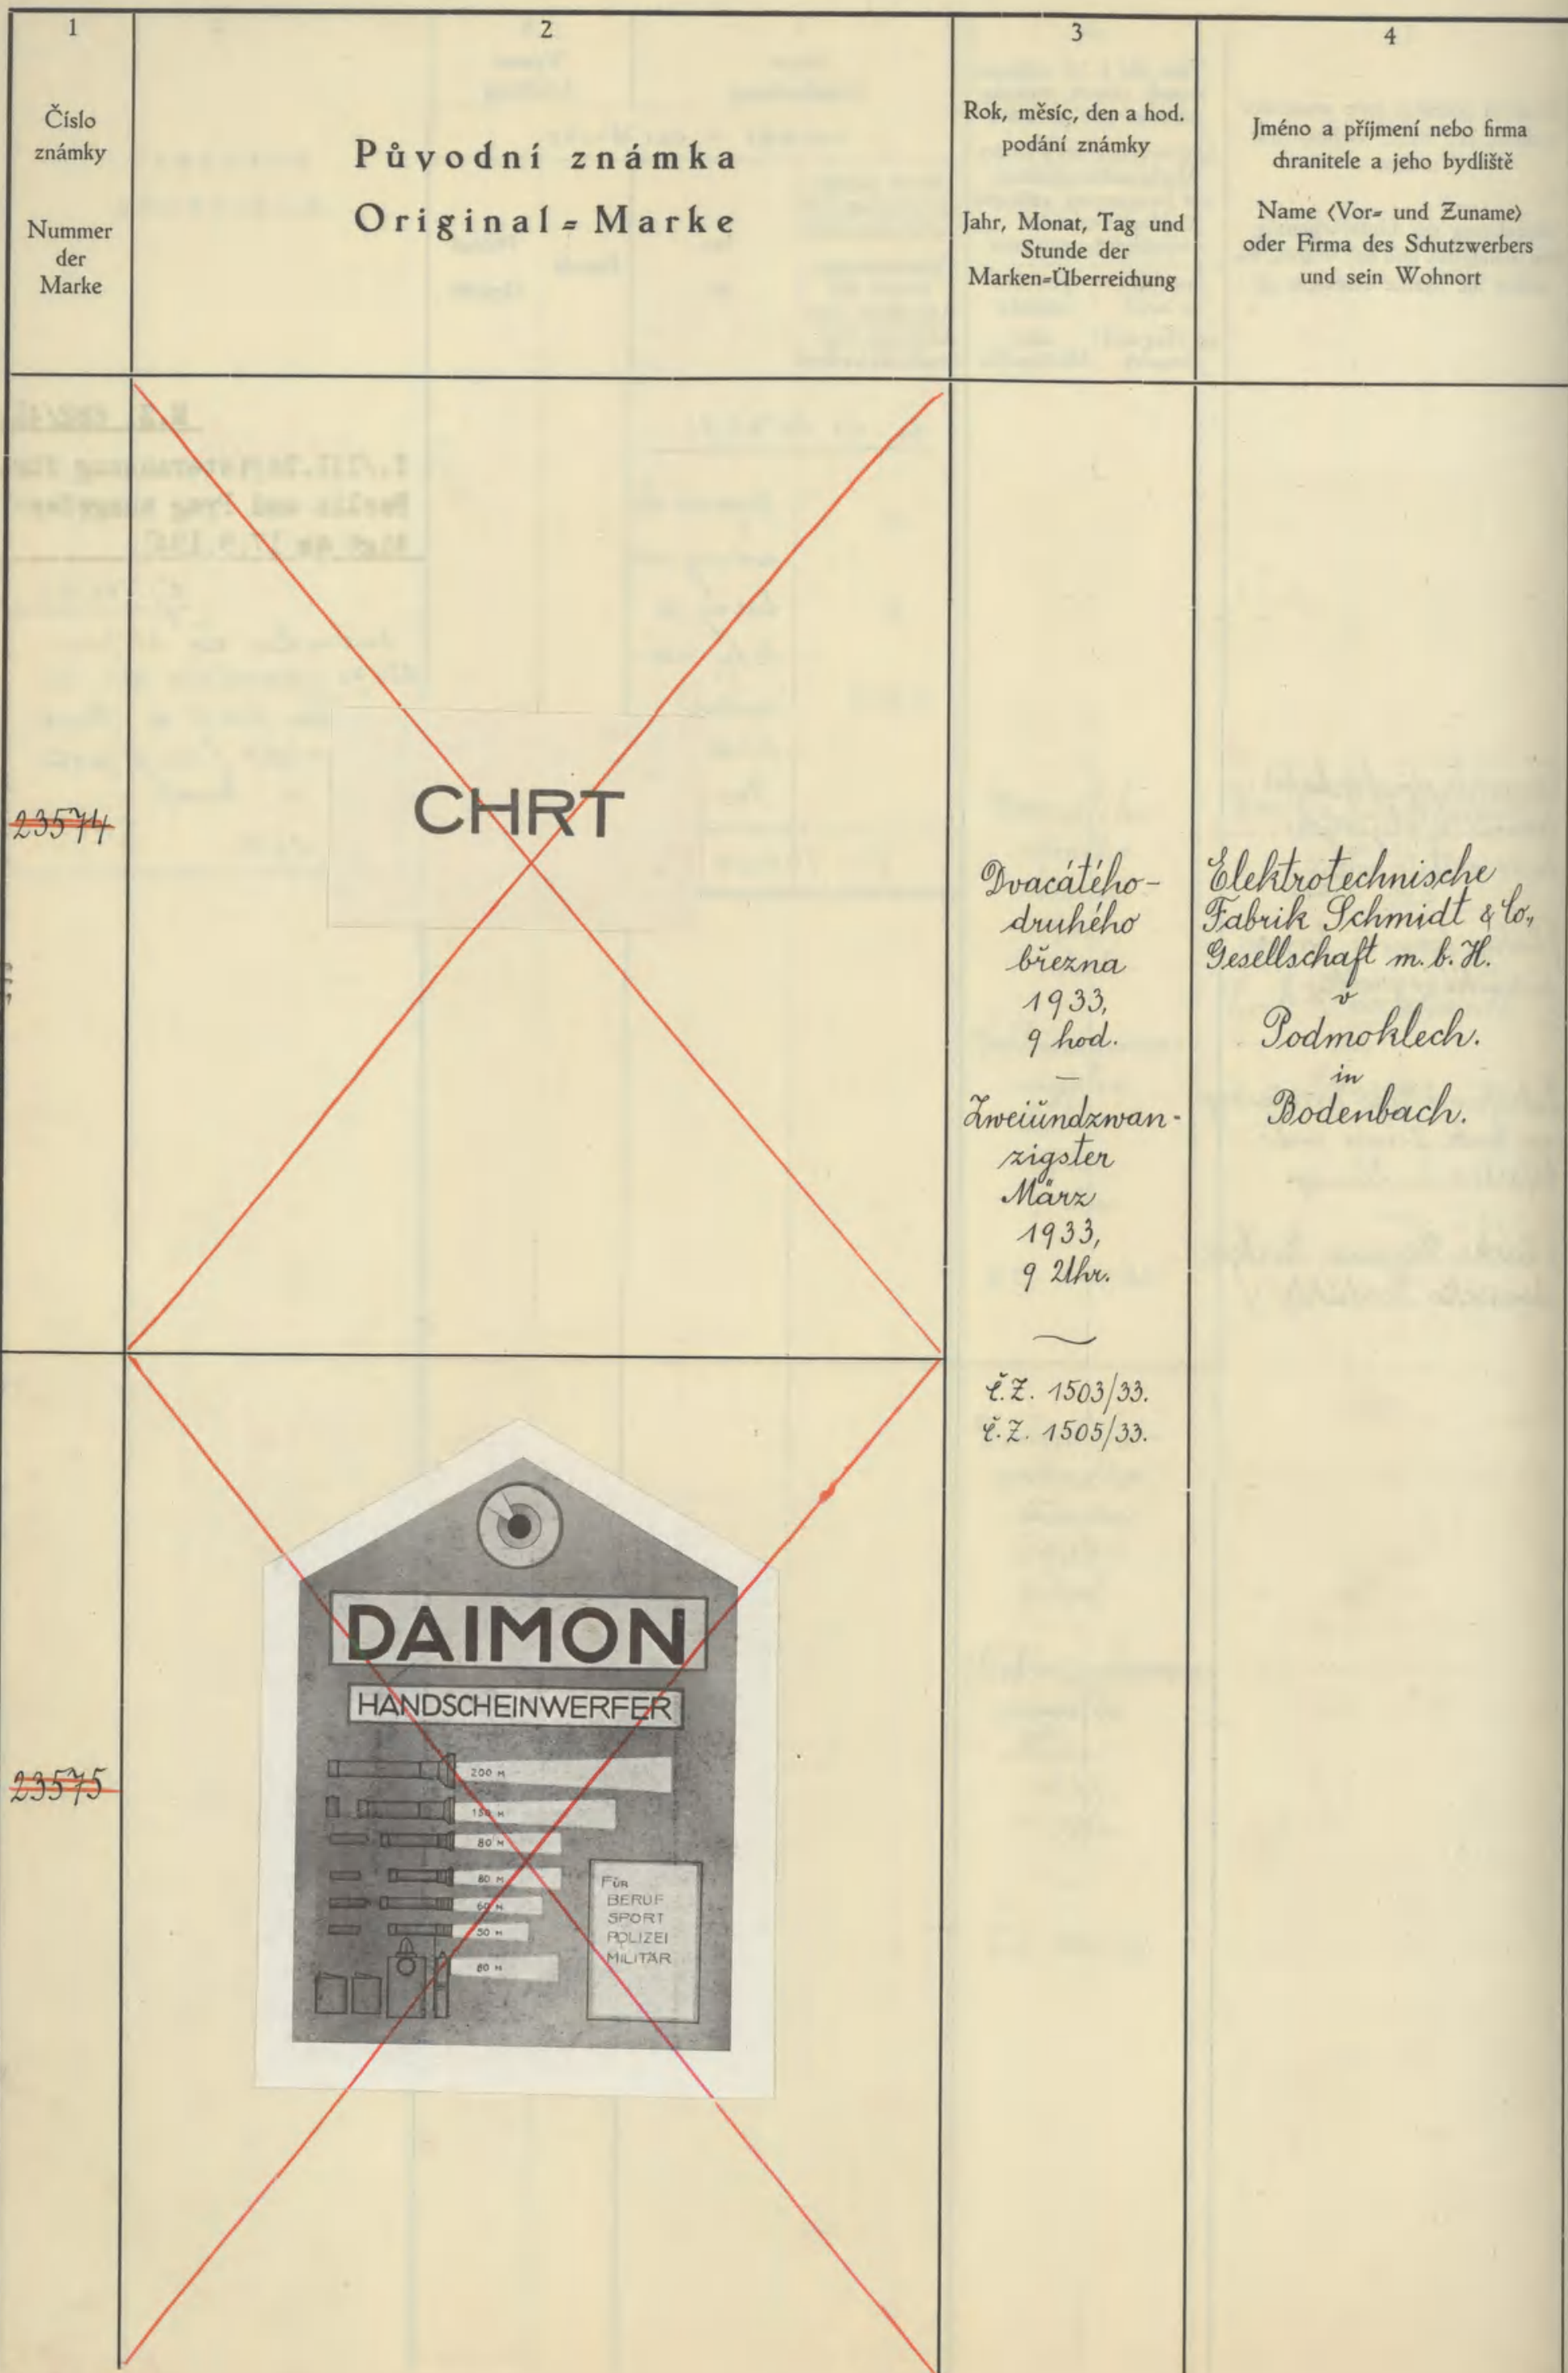 1
Číslo
známky
Nummer
der
Marke
2
Původní známka
Original=Marke
3
Rok, měsíc, den a hod.
podání známky
Jahr, Monat, Tag und
Stunde der
Marken=Überreichung
4
Jméno a příjmení nebo firma
chranitele a jeho bydliště
Name (Vor= und Zuname)
oder Firma des Schutzwerbers
und sein Wohnort
23574
CHRT
Dvacátého-
druhého
března
1933,
9 hod.
—
Zweiŭndzwan-
zigster
März
1933,
9 Uhr.
č.Z. 1503/33.
č.Z. 1505/33.
Elektrotechnische
Fabrik Schmidt & Co,
Gesellschaft m. b. H.
v
Podmoklech.
in
Bodenbach.
23575
DAIMON
HANDSCHEINWERFER
200 M
150 M
80 M
80 M
60 M
50 M
80 M
FÜR
BERUF
SPORT
POLIZEI
MILITÄR